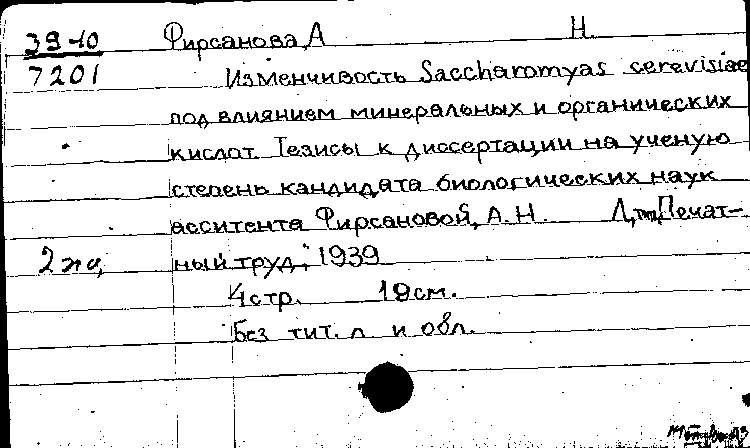 39-10 Фирсанова, А Н.
7201 Изменчивость Saccharomyas cerevisiae
под влиянием минеральных и органических
кислот. Тезисы к диссертации на ученую
степень кандидата биологических наук
асситента Фирсановой, А. Н. Л, тип, Печат-
2 эк, ный труд, 1939
4 стр. 19 см.
Без тит. л. и обл.